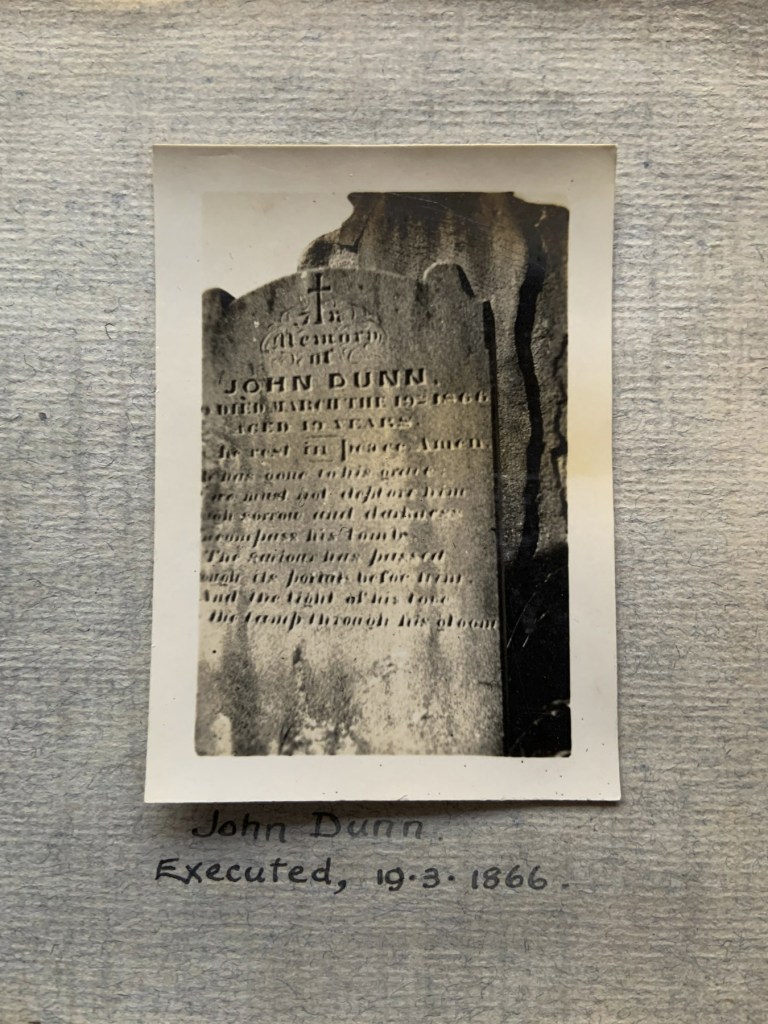 In
Memory
of
JOHN DUNN.
DIED MARCH THE 19th 1866
AGED 19 YEARS.
he rest in peace Amen.
has gone to his grave
we must not deplore him
sorrow and darkness
compass his tomb
The saviour has passed
its portals before him,
And the light of his love
the lamp through his gloom
John Dunn.
Executed, 19.3.1866.